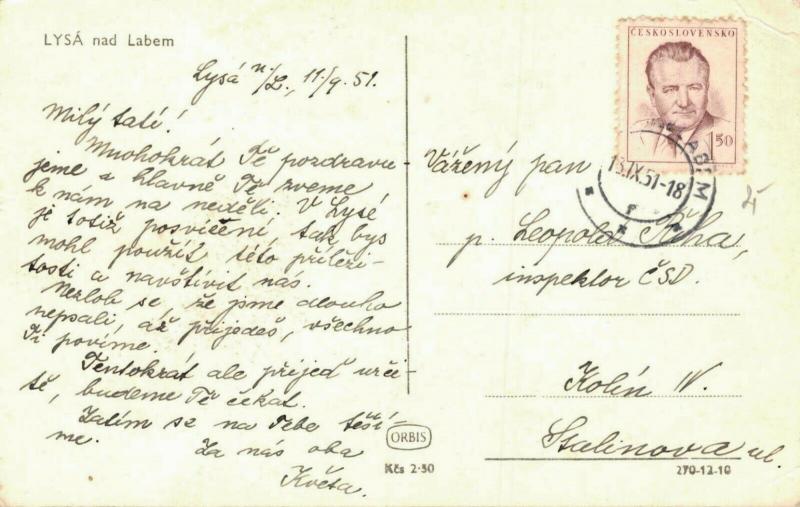 LYSÁ nad Labem
Lysá n/L., 11./9. 51.
Milý tatí!
Mnohokrát Tě pozdravu-
jeme a hlavně Tě zveme
k nám na neděli. V Lysé
je totiž posvícení, tak bys
mohl použít této příleži-
tosti a navštívit nás.
Nezlob se, že jsme dlouho
nepsali, až přijedeš, všechno
Ti povíme.
Tentokrát ale přijeď urči-
tě, budeme Tě čekat.
Zatím se na Tebe těší-
me.
Za nás oba
Květa.
ORBIS
Kčs 2·50
ČESKOSLOVENSKO
1 50
13.IX.51-18
Vážený pan
p. Leopold Říha,
inspektor ČSD.
Kolín IV.
Stalinova ul.
270-12-10